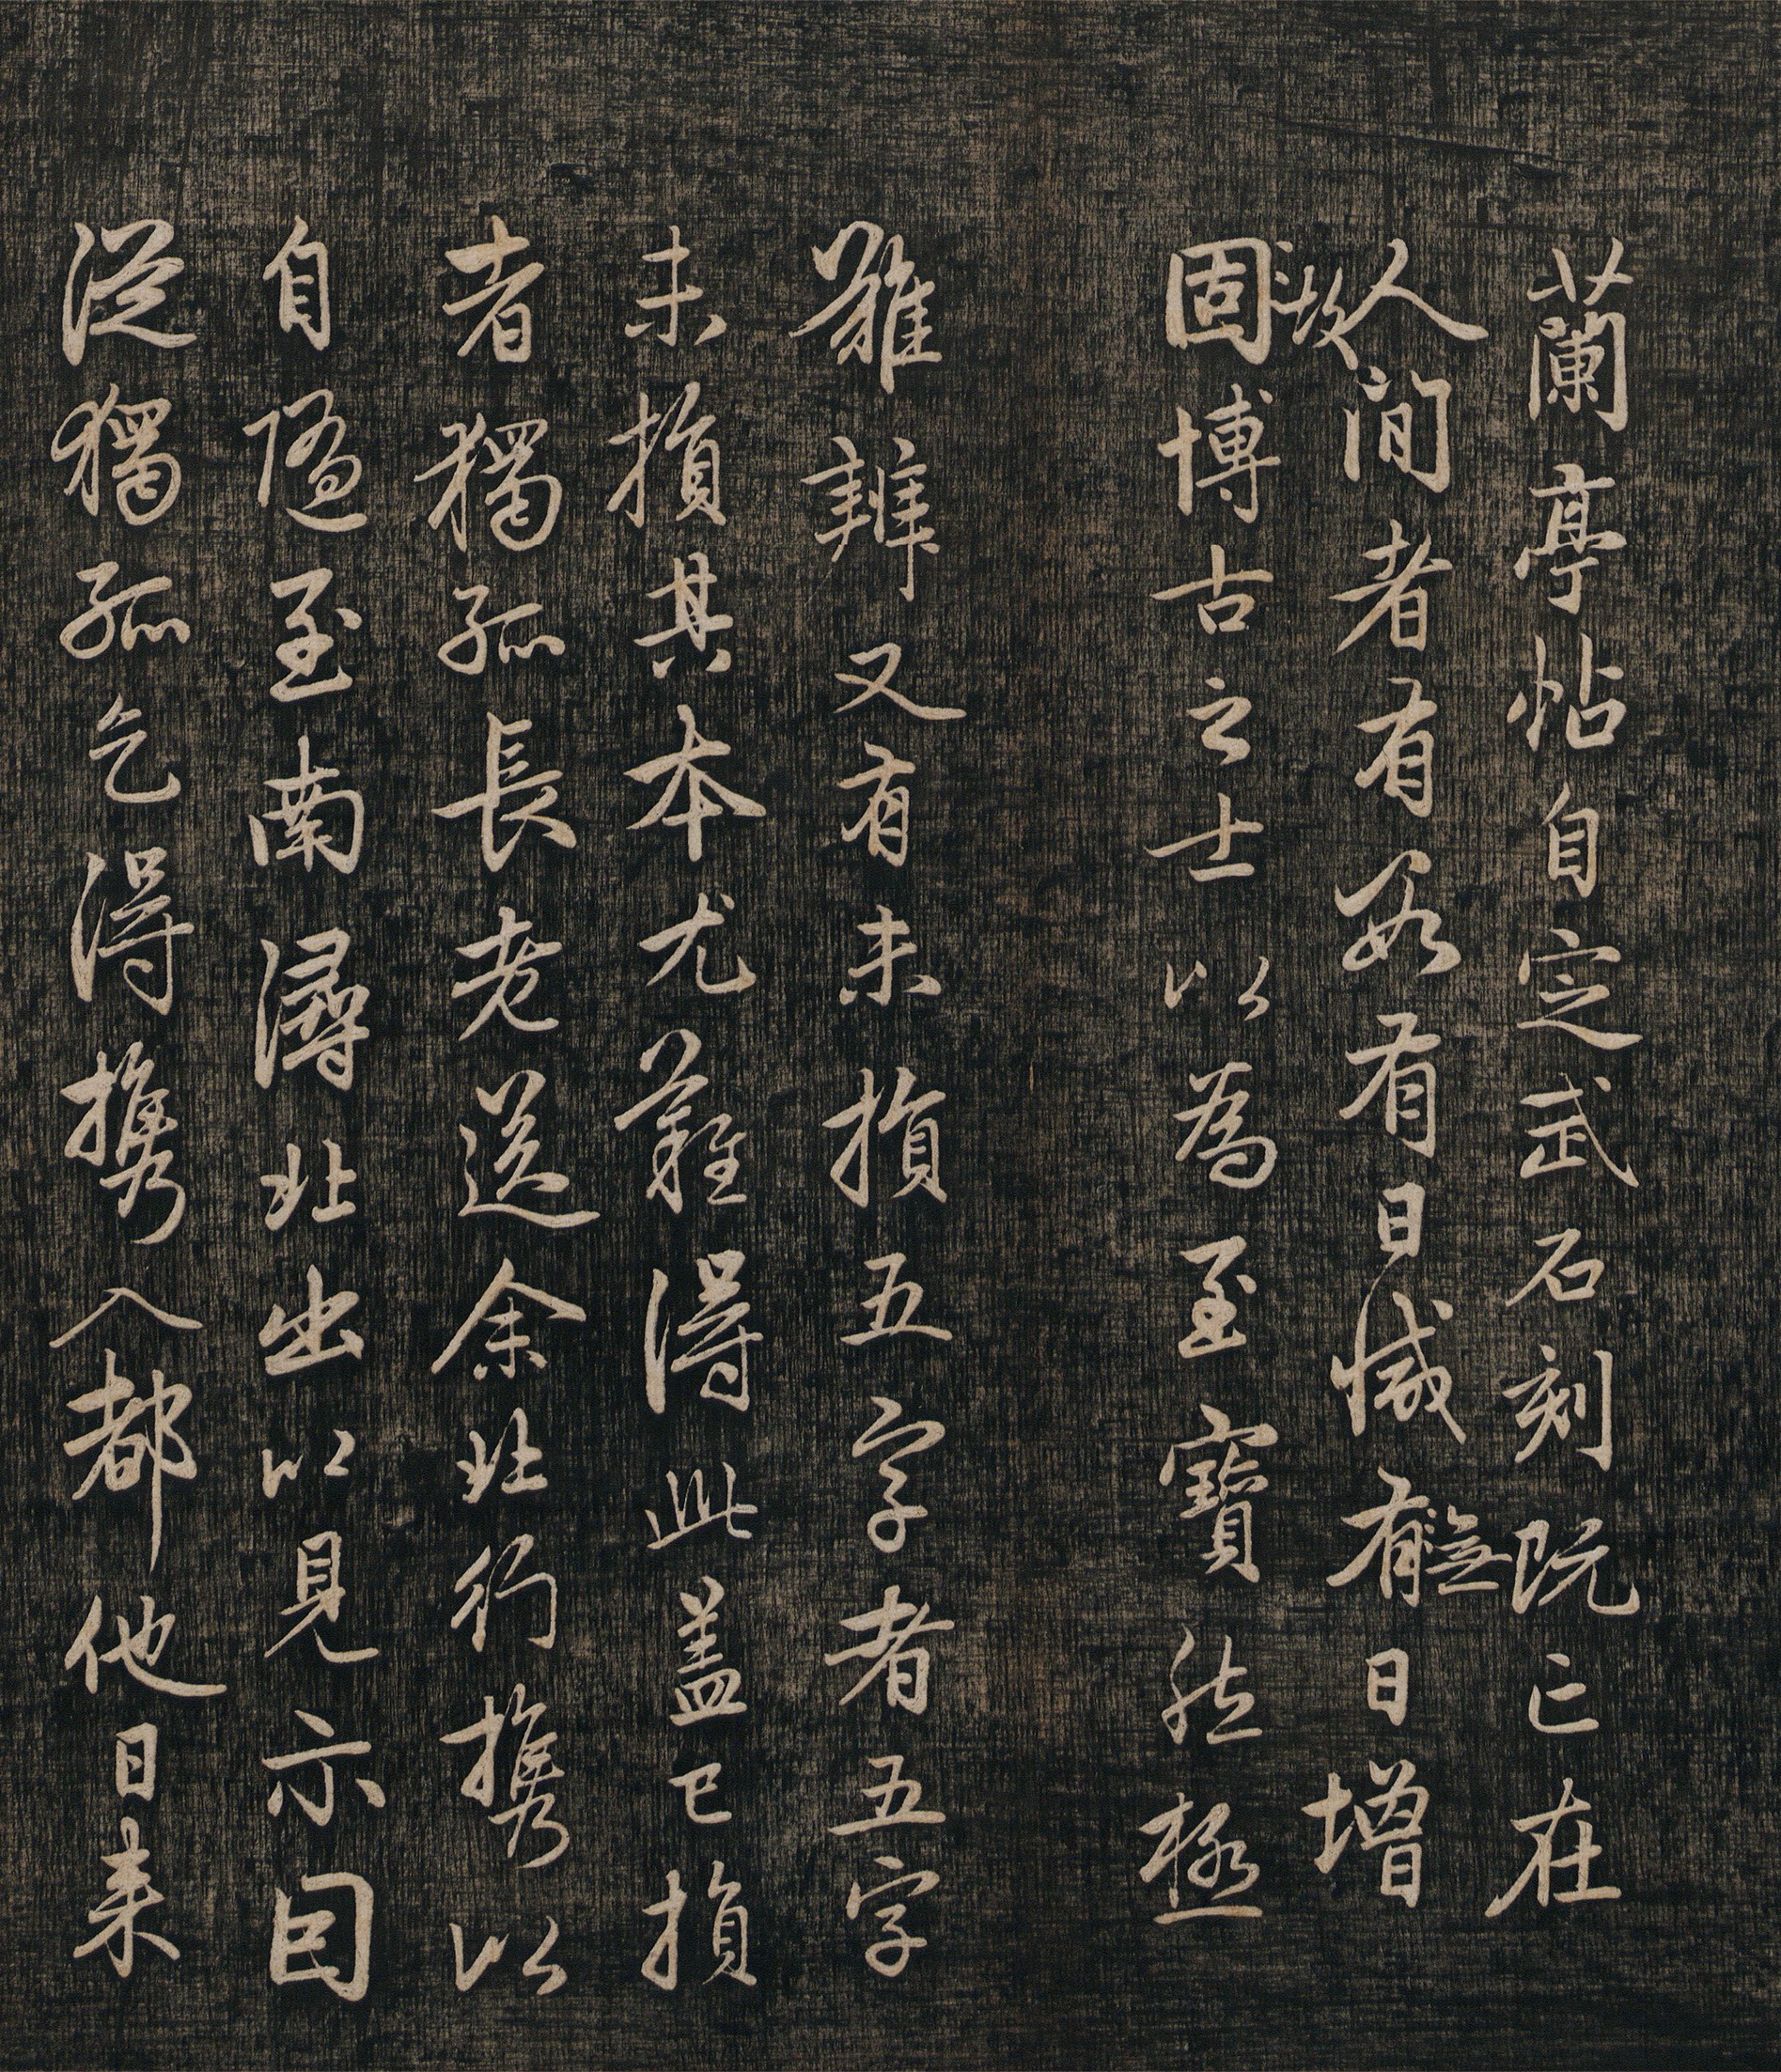 蘭亭帖自定武石刻既亡在
人間者有數有日減有無日增
故
固博古之士以為至寶然極
難辨又有未損五字者五字
未損其本尤難得此盖已損
者獨孤長老送余北行攜以
自隨至南潯北出以見示因
從獨孤乞得攜入都他日来